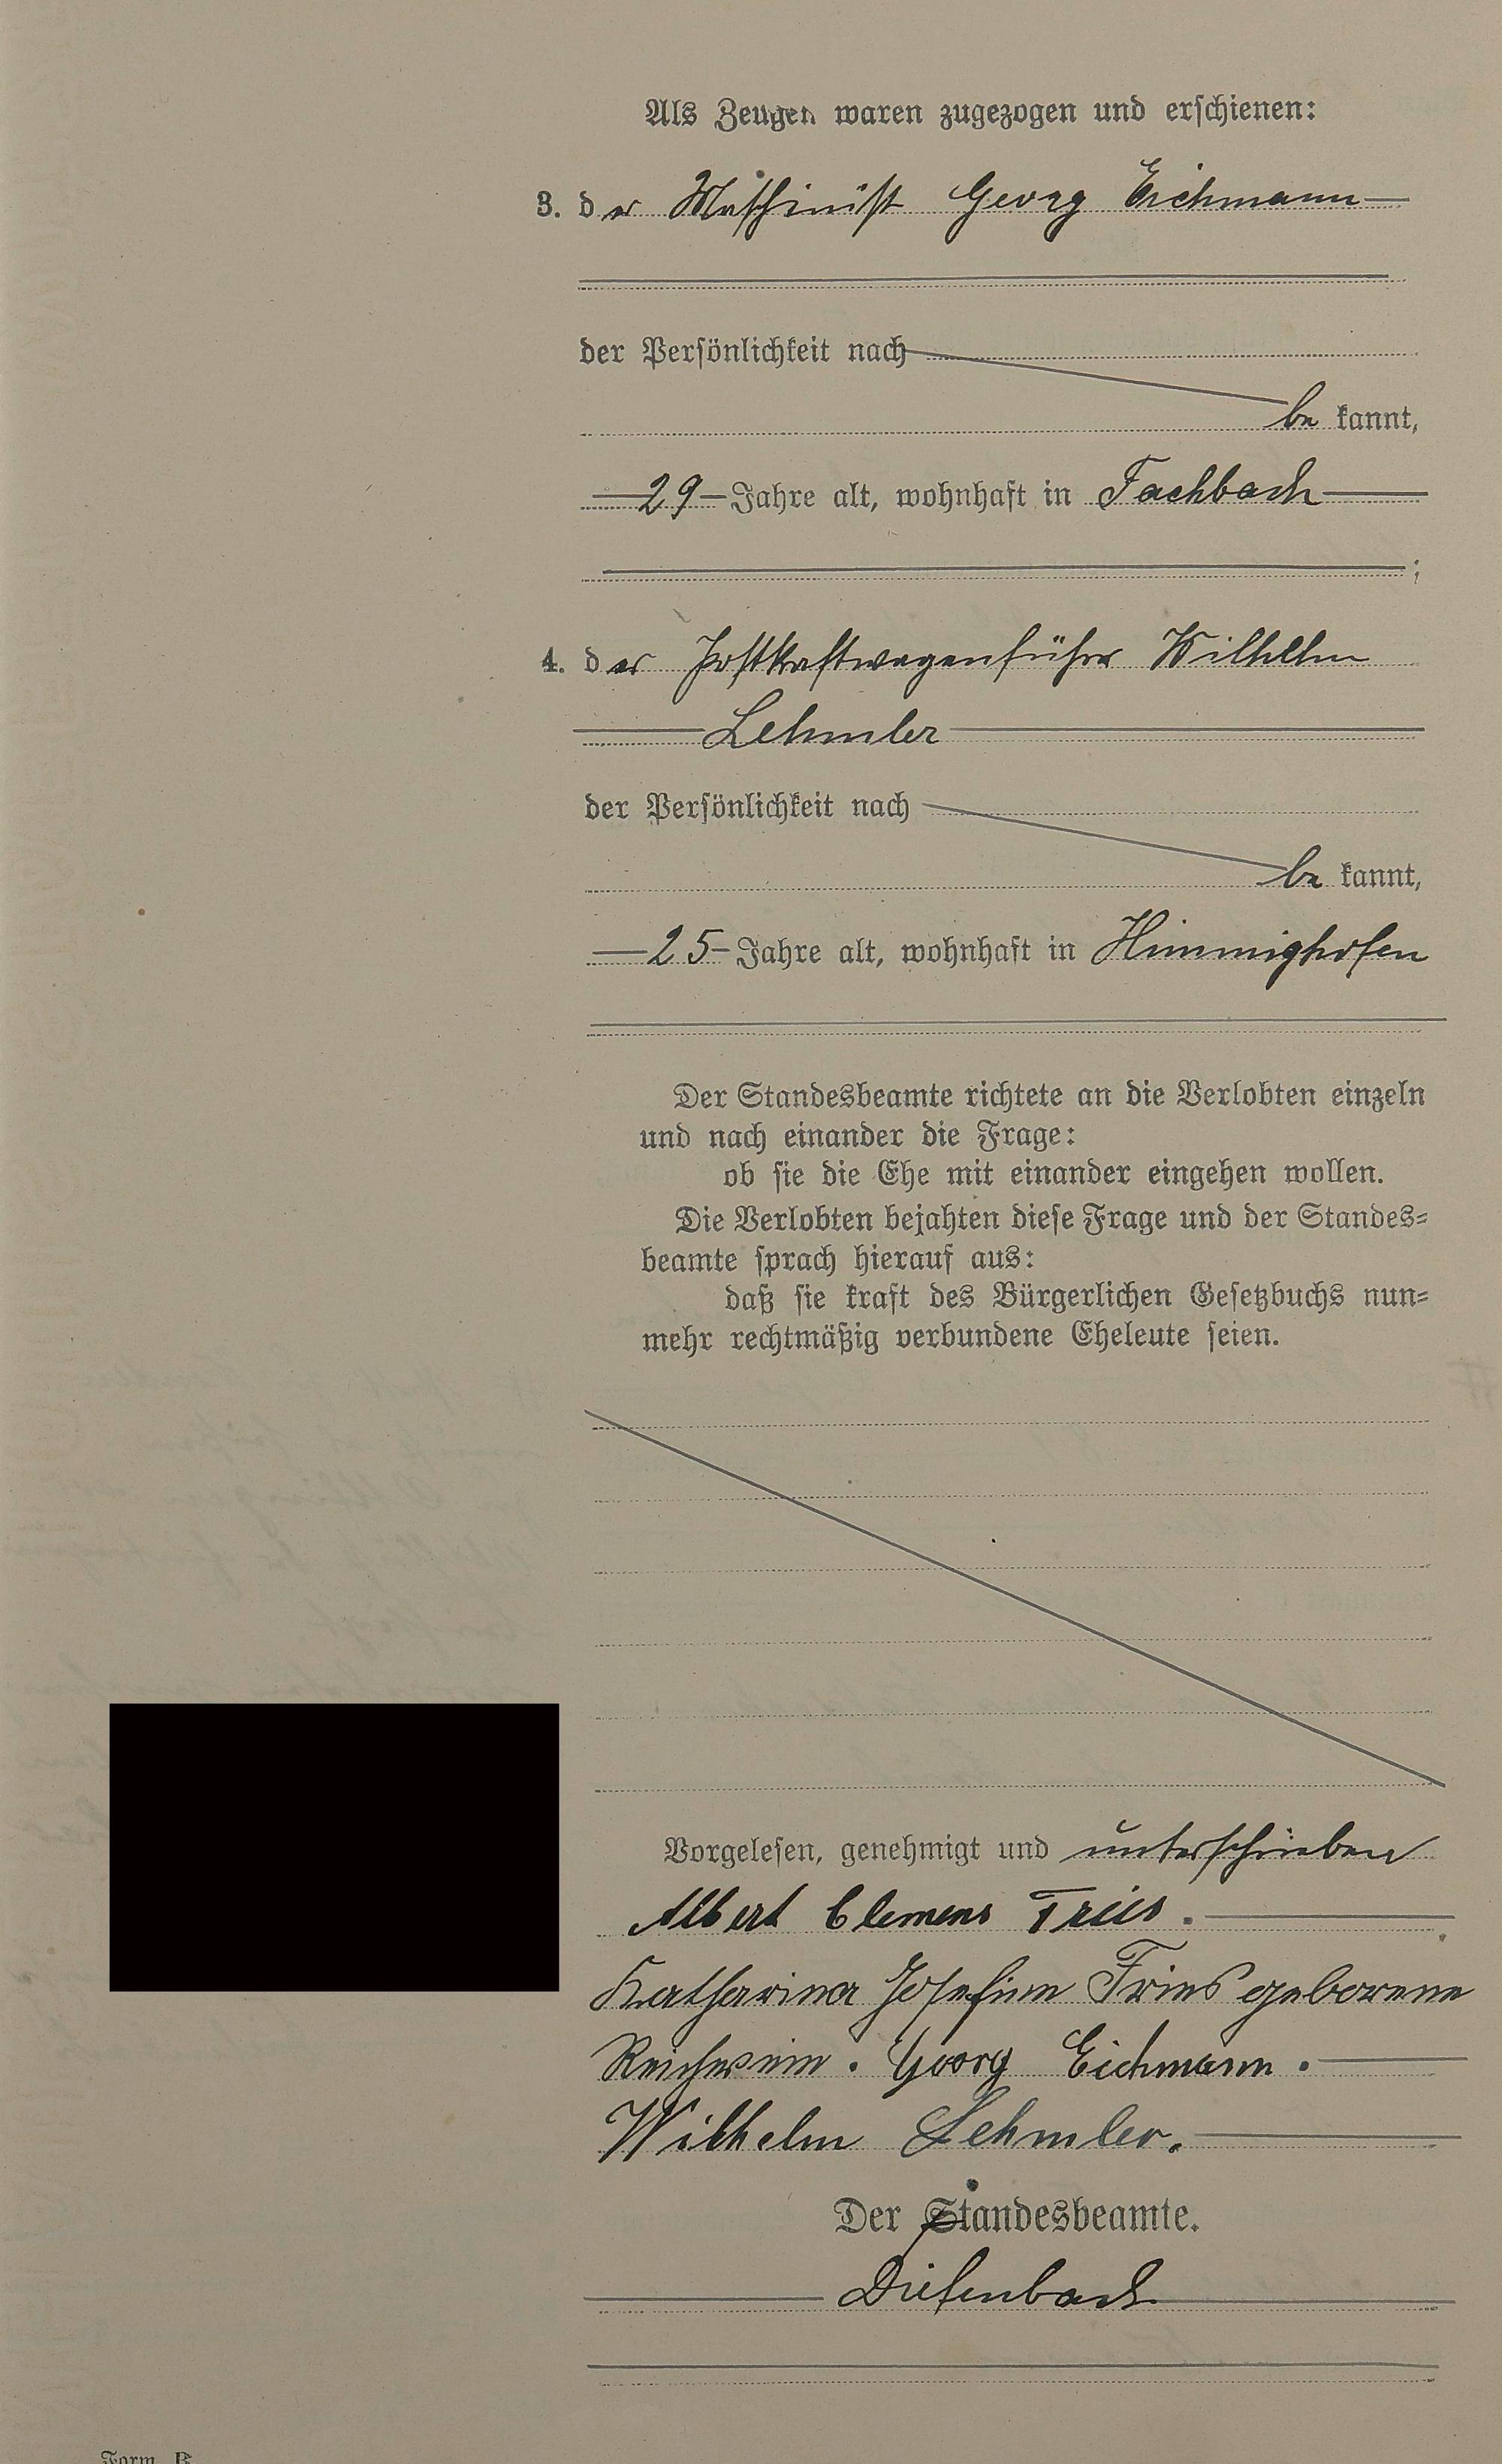 Als Zeugen waren zugezogen und erschienen:
3. der Maschinist Georg Eichmann
der Persönlichkeit nach
be kannt,
29 Jahre alt, wohnhaft in Fachbach
;
4. der Postkraftwagenführer Wilhelm
Lehmler
der Persönlichkeit nach
be kannt,
25 Jahre alt, wohnhaft in Himmighofen
Der Standesbeamte richtete an die Verlobten einzeln
und nach einander die Frage:
ob sie die Ehe mit einander eingehen wollen.
Die Verlobten bejahten diese Frage und der Standes=
beamte sprach hierauf aus:
daß sie kraft des Bürgerlichen Gesetzbuchs nun=
mehr rechtmäßig verbundene Eheleute seien.
Vorgelesen, genehmigt und unterschrieben
Albert Clemens Fries.
Katharina Josefine Fries geborene
Reichwein. Georg Eichmann.
Wilhelm Lehmler.
Der Standesbeamte.
Diefenbach
Form. B